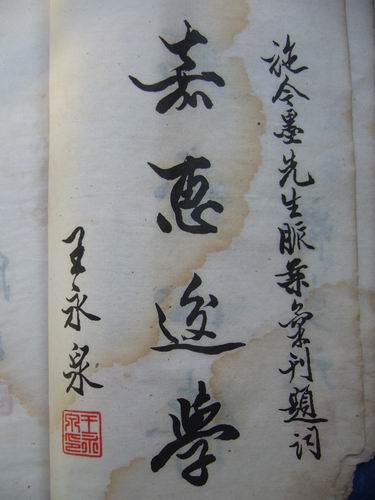 施今墨先生脈案彙刊題詞
嘉惠後学
王永泉
王永泉印